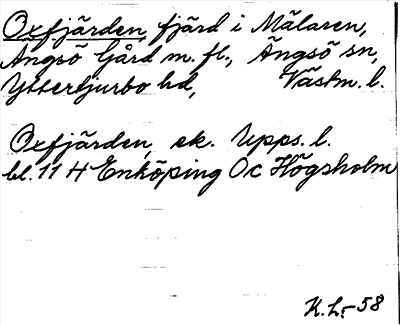 Oxfjärden, fjärd i Mälaren,
Ängsö Gård m. fl., Ängsö sn,
Ytterljurbo hd, Västm. l.
Oxfjärden, ek. Upps. l.
bl. 11 H Enköping Oc Högsholm
K. L. -58